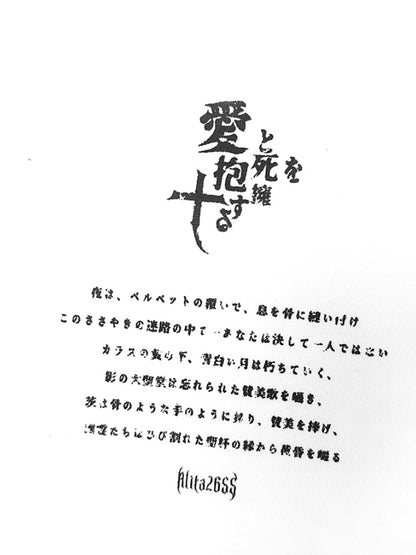 愛と死を
抱擁する
夜は、ベルベットの覆いで、息を骨に縫い付け
このささやきの迷路の中で一あなたは決して一人ではない
カラスの 下、蒼白い月は朽ちていく、
影の大聖堂は忘れられた賛美歌を囁き、
茨は骨のような手のように昇り、賛美を捧げ、
たちはひび割れた聖杯の縁から黄昏を啜る
Alita26SS